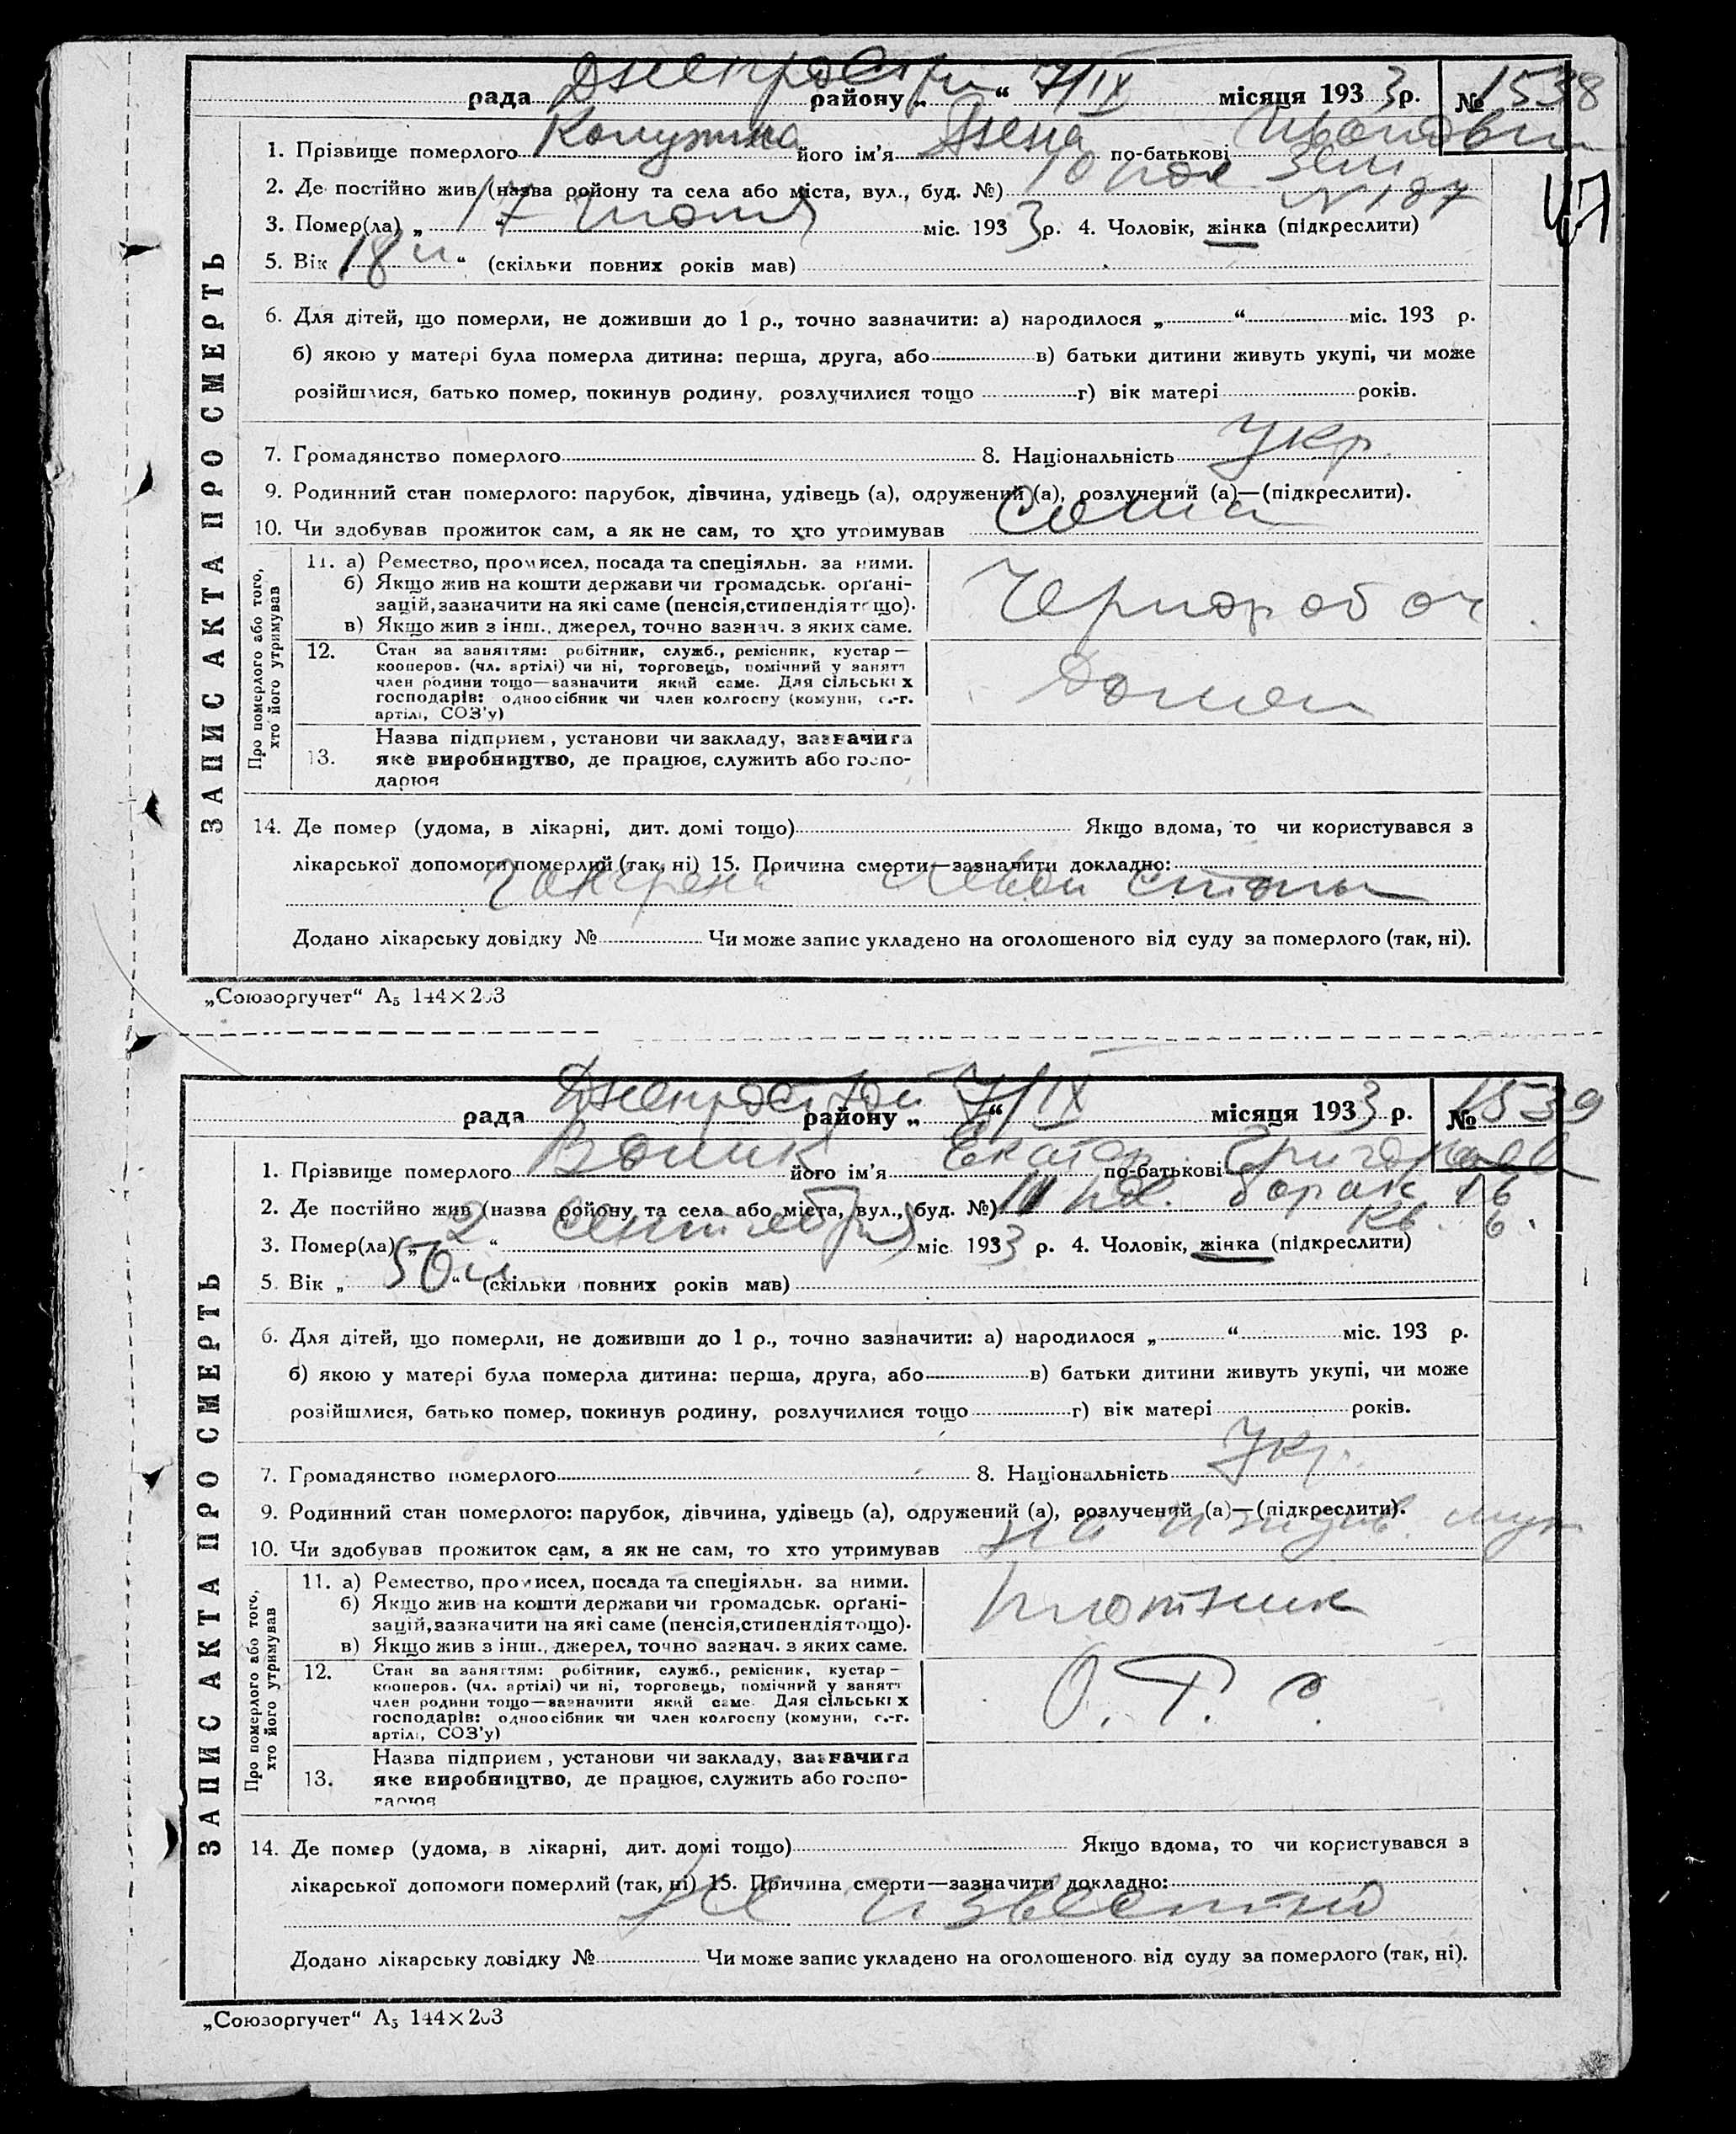 рада Днепрострой району „ “ 7/IX місяця 1933 р. № 1538
1. Прізвище померлого його ім'я по-батькові
2. Де постійно жив (назва ройону та села або міста, вул., буд. №) 10
№ 187
3. Помер(ла) „ 17 “ міс. 1933 р. 4. Чоловік, жінка (підкреслити)
5. Вік „ 18 л “ (скільки повних років мав)
6. Для дітей, що померли, не доживши до 1 р., точно зазначити: а) народилося „ “ міс. 193 р.
б) якою у матері була померла дитина: перша, друга, або в) батьки дитини живуть укупі, чи може
розійшлися, батько помер, покинув родину, розлучилися тощо г) вік матері років.
7. Громадянство померлого 8. Національність Укр.
9. Родинний стан померлого: парубок, дівчина, удівець (а), одружений (а), розлучений (а)—(підкреслити).
10. Чи здобував прожиток сам, а як не сам, то хто утримував Сама
ЗАПИС АКТА ПРО СМЕРТЬ
Про померлого або того, хто його утримував
11. а) Ремество, промисел, посада та спеціяльн. за ними.
б) Якщо жив на кошти держави чи громадськ. орґані-
зацій, зазначити на які саме (пенсія, стипендія тощо).
в) Якщо жив з інш., джерел, точно зазнач. з яких саме.
Чернораб оч
12. Стан за заняттям: робітник, служб., ремісник, кустар—
кооперов. (чл. артілі) чи ні, торговець, помічний у занятт
член родини тощо—зазначити який саме. Для сільських
господарів: одноосібник чи член колгоспу (комуни, с.-г.
артілі, СОЗ'у)
13. Назва підприєм, установи чи закладу, зазначига
яке виробництво, де працює, служить або госпо-
дарює
14. Де помер (удома, в лікарні, дит. домі тощо) Якщо вдома, то чи користувався з
лікарської допомоги померлий (так, ні) 15. Причина смерти—зазначити докладно:
Гангрена левой стопы
Додано лікарську довідку № Чи може запис укладено на оголошеного від суду за померлого (так, ні).
„Союзоргучет“ А₅ 144×203
рада Днепрострой району „ “ 7/IX місяця 1933 р. № 1539
1. Прізвище померлого Вовк його ім'я Екатер. по-батькові Григорьевна
2. Де постійно жив (назва ройону та села або міста, вул., буд. №) барак 16
кв. 6.
3. Помер(ла) „ 2 “ сентября міс. 1933 р. 4. Чоловік, жінка (підкреслити)
5. Вік „ 50 л “ (скільки повних років мав)
6. Для дітей, що померли, не доживши до 1 р., точно зазначити: а) народилося „ “ міс. 193 р.
б) якою у матері була померла дитина: перша, друга, або в) батьки дитини живуть укупі, чи може
розійшлися, батько помер, покинув родину, розлучилися тощо г) вік матері років.
7. Громадянство померлого 8. Національність Укр.
9. Родинний стан померлого: парубок, дівчина, удівець (а), одружений (а), розлучений (а)—(підкреслити).
10. Чи здобував прожиток сам, а як не сам, то хто утримував на иждив. муж
ЗАПИС АКТА ПРО СМЕРТЬ
Про померлого або того, хто його утримував
11. а) Ремество, промисел, посада та спеціяльн. за ними.
б) Якщо жив на кошти держави чи громадськ. орґані-
зацій, зазначити на які саме (пенсія, стипендія тощо).
в) Якщо жив з інш., джерел, точно зазнач. з яких саме.
плотник
12. Стан за заняттям: робітник, служб., ремісник, кустар—
кооперов. (чл. артілі) чи ні, торговець, помічний у занятт
член родини тощо—зазначити який саме. Для сільських
господарів: одноосібник чи член колгоспу (комуни, с.-г.
артілі, СОЗ'у)
13. Назва підприєм, установи чи закладу, зазначига
яке виробництво, де працює, служить або госпо-
дарює
14. Де помер (удома, в лікарні, дит. домі тощо) Якщо вдома, то чи користувався з
лікарської допомоги померлий (так, ні) 15. Причина смерти—зазначити докладно:
Не известно
Додано лікарську довідку № Чи може запис укладено на оголошеного від суду за померлого (так, ні).
„Союзоргучет“ А₅ 144×203